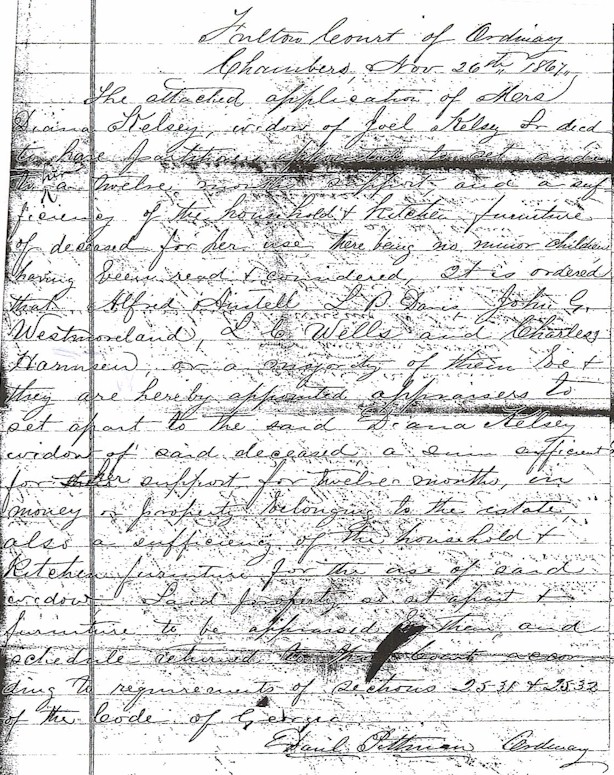 Fulton Court of Ordinary
Chambers, Nov. 26th, 1867,
The attached application of Mrs
Diana Kelsey, widow of Joel Kelsey Sr decd
to have
to her a twelve months support and a suf
ficiency of the household & kitchen furniture
of deceased for her use there being no minor children
having been read & considered It is ordered
that Alfred Austell L P Davis, John G.
Westmoreland, L C Wells and Charles
Harmsen, or a majority of them be &
they are hereby appointed appraisers to
set apart to the said Diana Kelsey
widow of said deceased a sum sufficient
for her support for twelve months, in
money or property belonging to the estate,
also a sufficiency of the household &
Kitchen furniture for the use of said
widow Said property so set apart &
furniture to be appraised by them, and
schedule returned to this Court accor
ding to requirements of sections 2531 & 2532
of the Code of Georgia
Danl. Pittman Ordinary